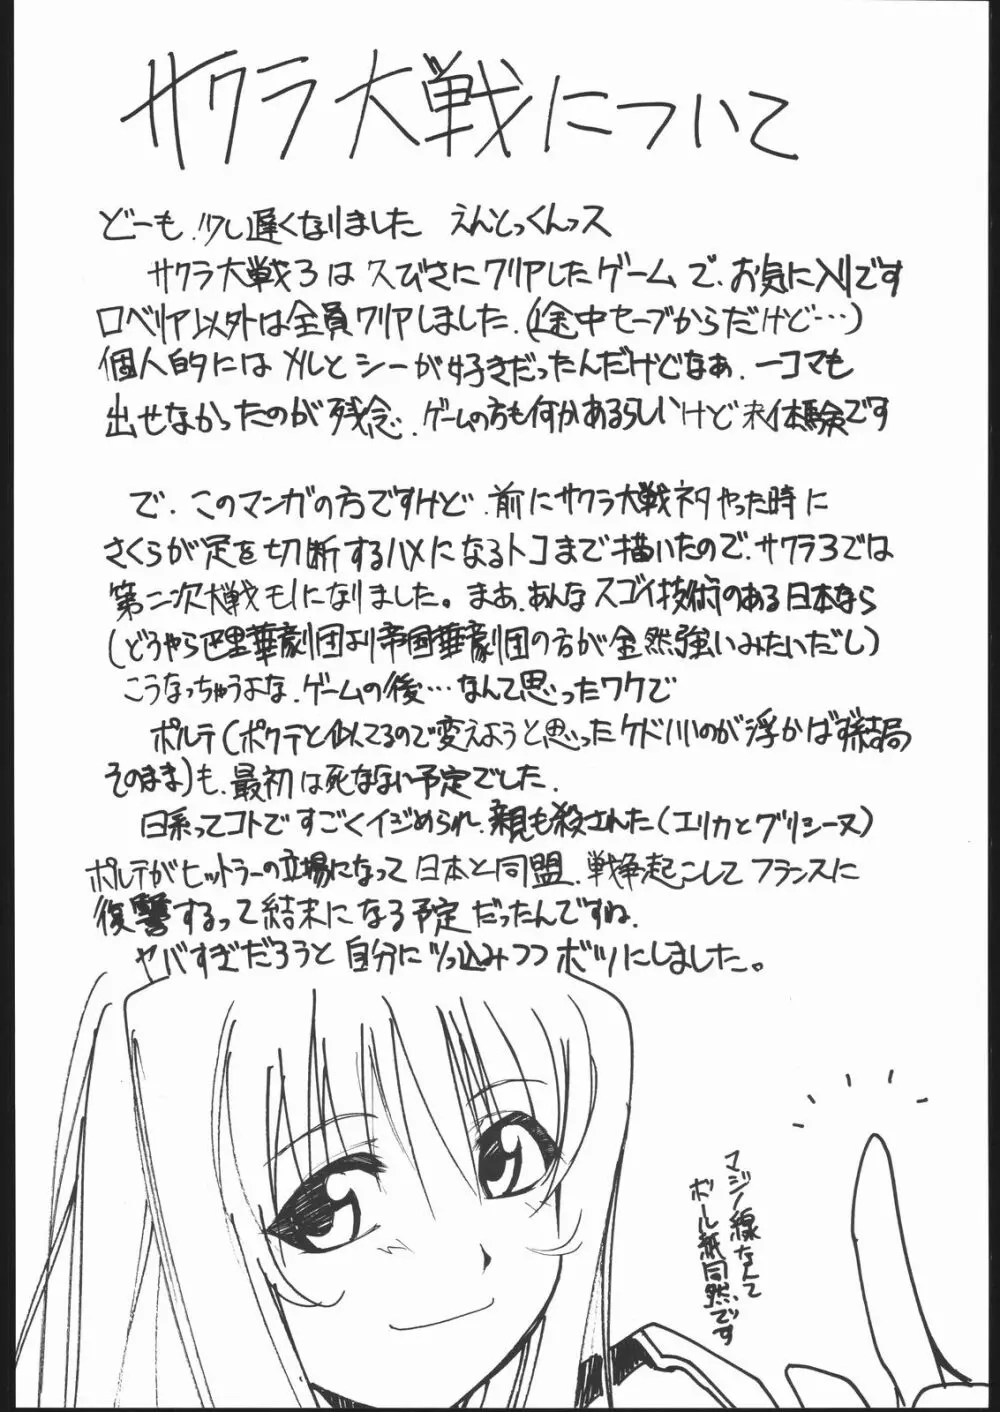 サクラ大戦について
どーも、少し遅くなりました えんとっくんっス
サクラ大戦3は久びさにクリアしたゲームで、お気に入りです
ロベリア以外は全員クリアしました。(途中セーブからだけど…)
個人的にはメルとシーが好きだったんだけどなぁ、一コマも
出せなかったのが残念、ゲームの方も何かあるらしいけど未体験です
で、このマンガの方ですけど、前にサクラ大戦ネタやった時に
さくらが足を切断するハメになるトコまで描いたので、サクラ3では
第二次大戦モノになりました。まぁ、あんなスゴイ技術のある日本なら
(どうやら巴里華劇団より帝国華劇団の方が全然強いみたいだし)
こうなっちゃうよな、ゲームの後…なんて思ったワケで
ポルテ(ポクテと似てるので変えようと思ったケドいいのが浮かばず結局
そのまま)も、最初は死なない予定でした。
日系ってコトですごくイジめられ、親も殺された(エリカとグリシーヌ)
ポルテがヒットラーの立場になって日本と同盟、戦争起こしてフランスに
復讐するって結末になる予定だったんですね。
ヤバすぎだろうと自分にツッ込みつつボツにしました。
マジノ線なんて
ボール紙同然です